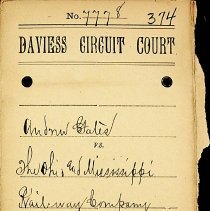 No. 7778 374
DAVIESS CIRCUIT COURT
Andrew Gates
vs.
The Ohio and Mississippi
Railway Company